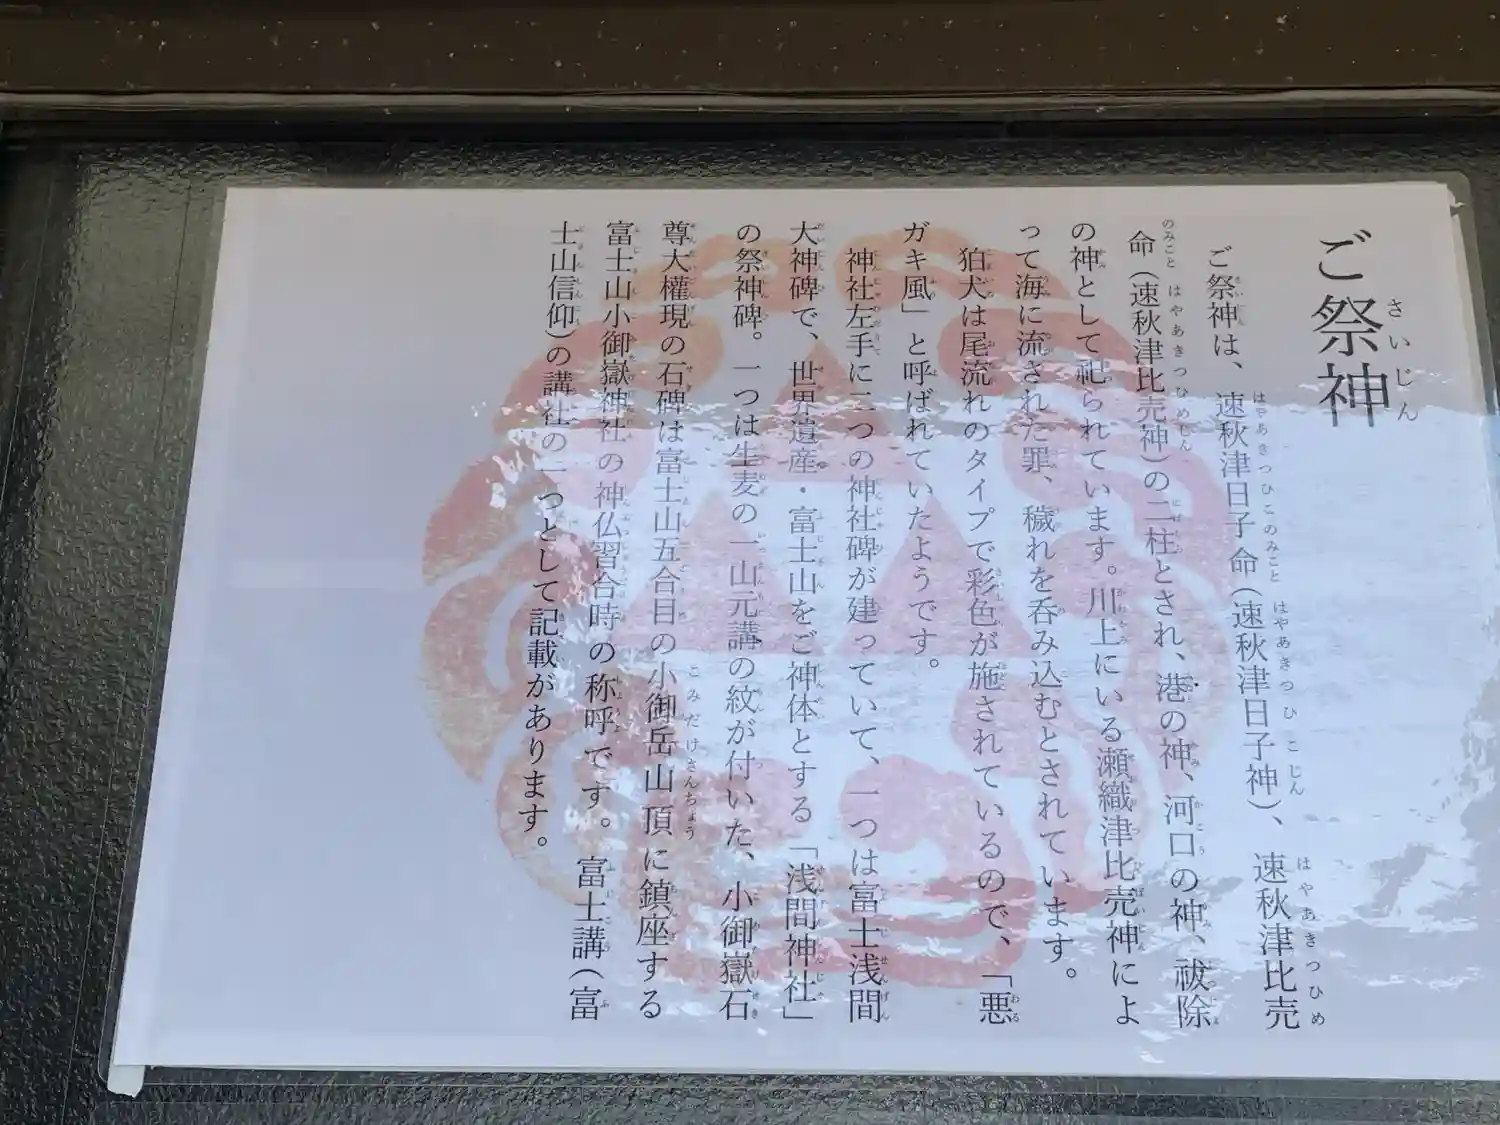 ご祭神
ご祭神は、速秋津日子命（速秋津日子神）、速秋津比売
命（速秋津比売神）の二柱とされ、港の神、河口の神、祓除
の神として祀られています。川上にいる瀬織津比売神によ
って海に流された罪、穢れを呑み込むとされています。
狛犬は尾流れのタイプで彩色が施されているので、「悪
ガキ風」と呼ばれていたようです。
神社左手に二つの神社碑が建っていて、一つは富士浅間
大神碑で、世界遺産・富士山をご神体とする「浅間神社」
の祭神碑。一つは生麦の一山元講の紋が付いた、小御嶽石
尊大權現の石碑は富士山五合目の小御岳山頂に鎮座する
富士山小御嶽神社の神仏習合時の称呼です。富士講（富
士山信仰）の講社の一つとして記載があります。